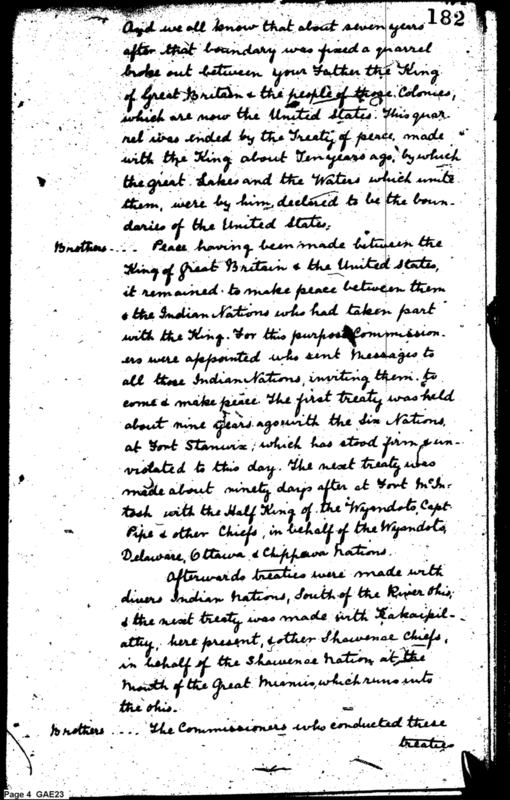 182
And we all know that about seven years
after that boundary was fixed a quarrel
broke out between your Father the King
of Great Britain & the people of those Colonies,
which are now the United States. This quar-
rel was ended by the Treaty of peace, made
with the King about Ten years ago, by which
the great Lakes and the Waters which unite
them, were by him, declared to be the boun-
daries of the United States.
Brothers .... Peace having been made between the
King of great Britain & the United States,
it remained to make peace between them
& the Indian Nations who had taken part
with the King. For this purpose Commission-
ers were appointed who sent Messages to
all those Indian Nations, inviting them to
come & make peace. The first treaty was held
about nine years ago with the Six Nations,
at Fort Stanwix, which has stood firm & un-
violated to this day. The next treaty was
made about ninety days after at Fort McIn-
tosh with the Half King of the Wyandots, Capt.
Pipe & other Chiefs, in behalf of the Wyandots,
Delaware, Ottawa & Chippawa Nations.
Afterwards treaties were made with
divers Indian Nations, South of the River Ohio;
& the next treaty was made with Kakaipil-
athy, here present, & other Shawenae Chiefs,
in behalf of the Shawenae Nation, at the
Mouth of the Great Miamis, which runs into
the Ohio.
Brothers .... The Commissioners who conducted these
treaties
Page 4 GAE23